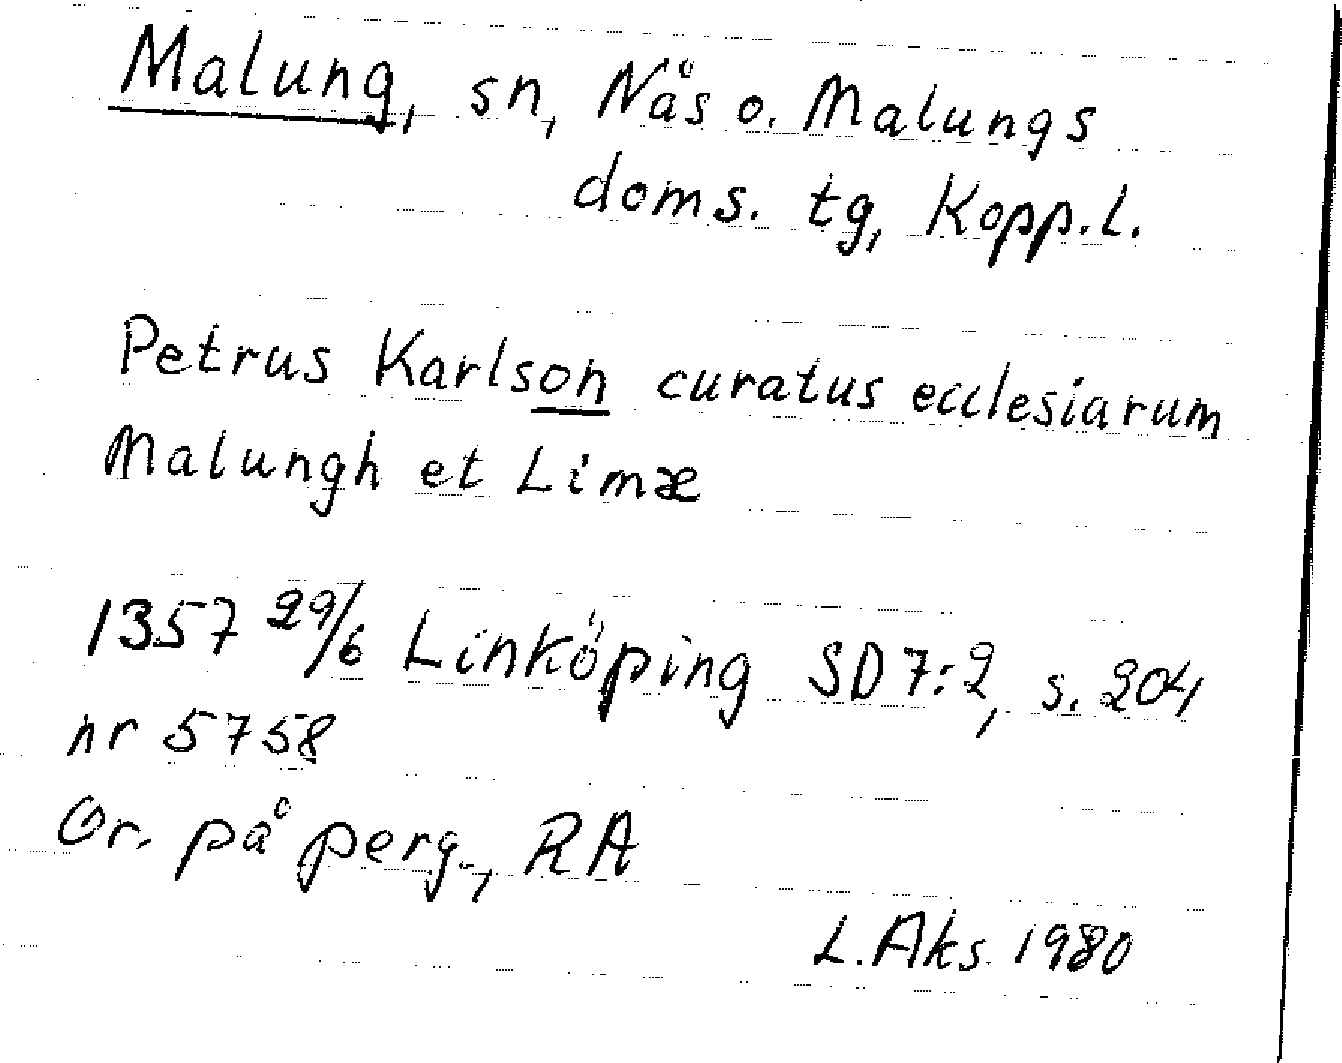 Malung, sn, Nås o. Malungs
doms. tg, Kopp.l.
Petrus Karlson curatus ecclesiarum
Malungh et Limæ
1357 29/6 Linköping SD 7:2, s. 204,
nr 5758
Or. på perg., RA
L.Aks. 1980